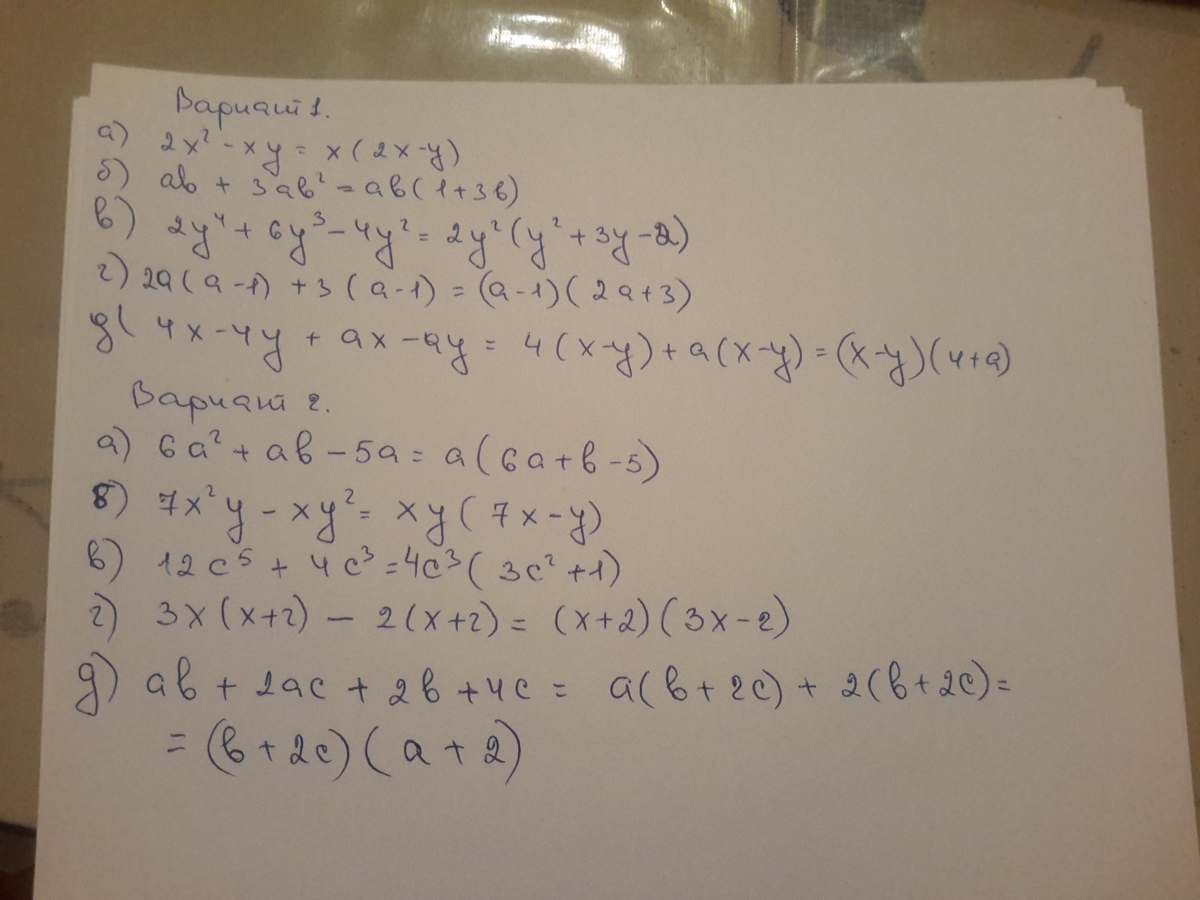 Вариант 1.
а) 2x² - xy = x(2x-y)
б) ав + 3ав² = ав(1+3в)
в) 2y⁴ + 6y³ - 4y² = 2y²(y² + 3y - 2)
г) 2a(a-1) + 3(a-1) = (a-1)(2a+3)
д( 4x - 4y + ax - ay = 4(x-y) + a(x-y) = (x-y)(4+a)
Вариант 2.
а) 6a² + aв - 5a = a(6a + в - 5)
б) 7x²y - xy² = xy(7x-y)
в) 12c⁵ + 4c³ = 4c³(3c² + 1)
г) 3x(x+2) - 2(x+2) = (x+2)(3x-2)
д) ав + 2ac + 2в + 4c = a(в + 2c) + 2(в + 2c) =
= (в + 2c)(a + 2)